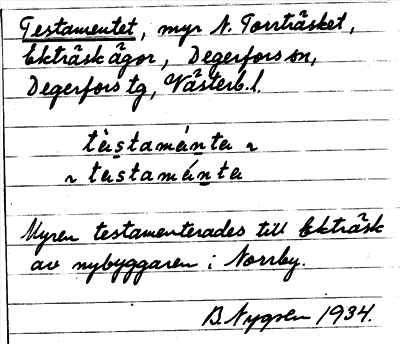 Testamentet, myr N. Torrträsket,
Ekträsk ägor, Degerfors sn,
Degerfors tg, Västerb. l.
tàstamánta ~
~ tastamánta
Myren testamenterades till Ekträsk
av nybyggaren i Norrby.
B. Nygren 1934.